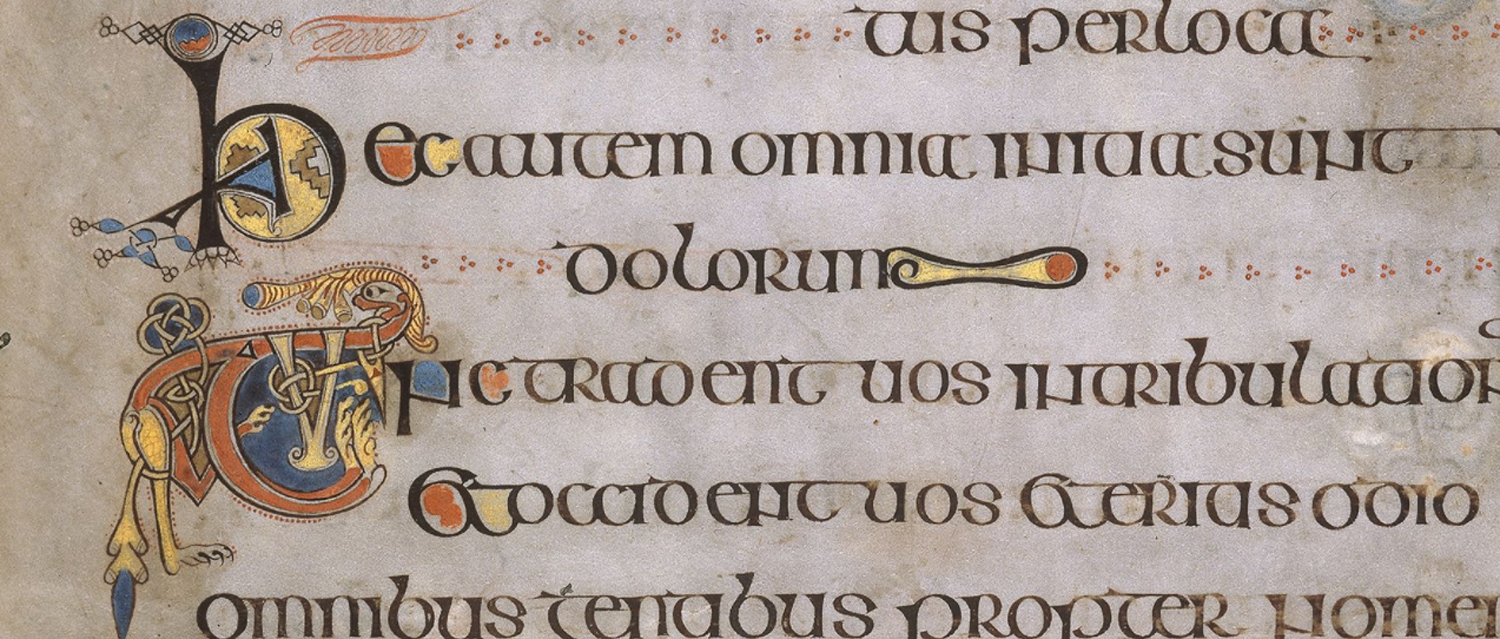 tus perloca
hec autem omnia initia sunt
dolorum
Tunc tradent uos intribulation
&occident uos &eritis odio
omnibus gentibus propter nomen